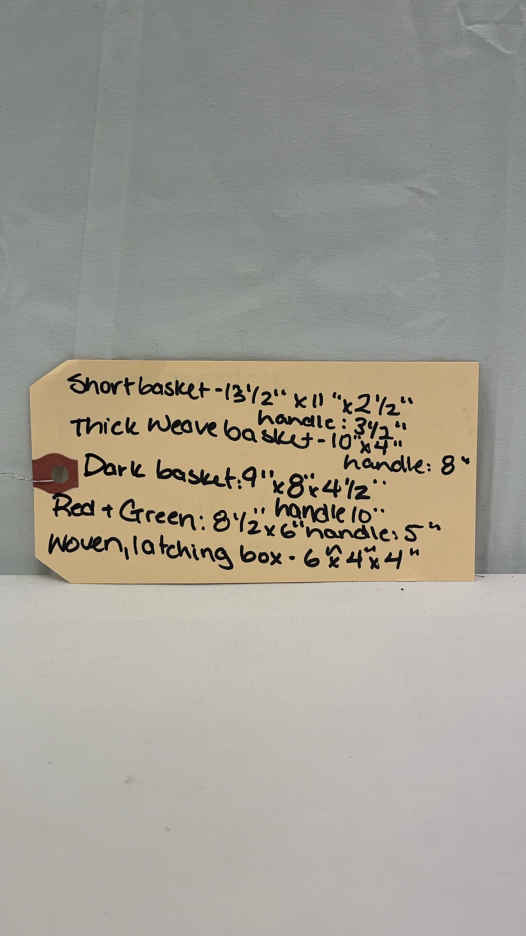 Short basket - 13 1/2" x 11" x 2 1/2"
handle: 3 1/2"
Thick Weave basket - 10" x 4"
handle: 8"
Dark basket: 9" x 8" x 4 1/2"
handle 10"
Red + Green: 8 1/2 x 6" handle: 5"
Woven, latching box - 6" x 4" x 4"